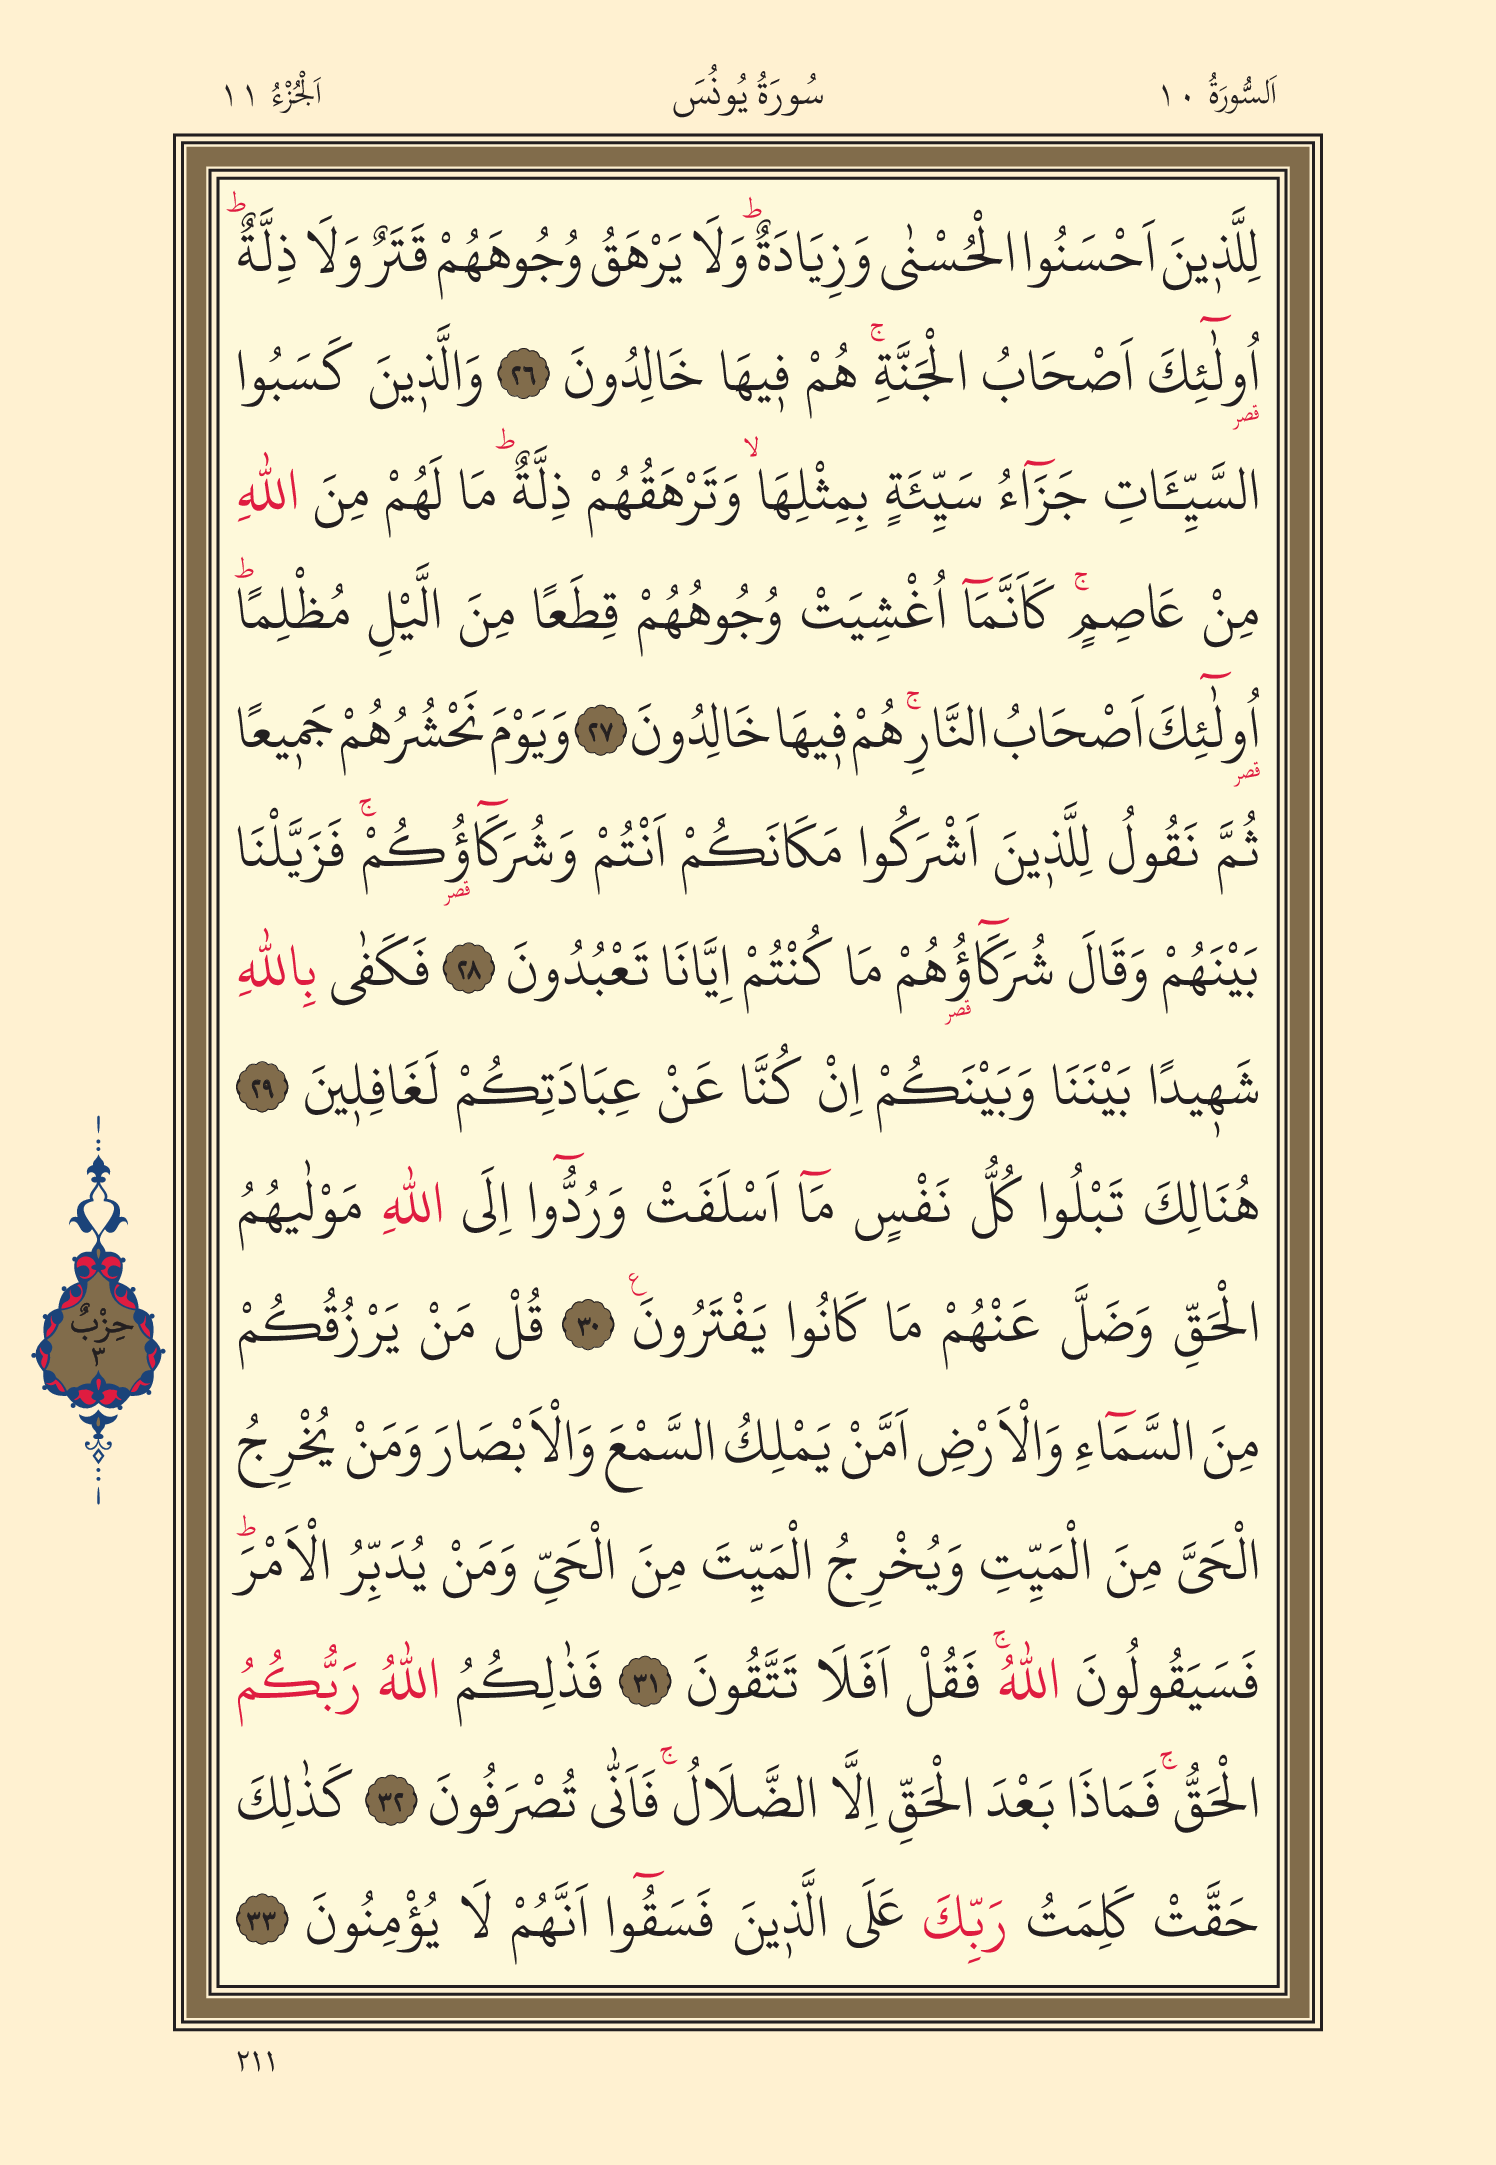 اَلسُّورَةُ ١٠ سُورَةُ يُونُسَ اَلْجُزْءُ ١١
لِلَّذ۪ينَ اَحْسَنُوا الْحُسْنٰى وَزِيَادَةٌۜ وَلَا يَرْهَقُ وُجُوهَهُمْ قَتَرٌ وَلَا ذِلَّةٌۜ
اُو۬لٰٓئِكَ اَصْحَابُ الْجَنَّةِۚ هُمْ ف۪يهَا خَالِدُونَ ٢٦ وَالَّذ۪ينَ كَسَبُوا
السَّيِّـَٔاتِ جَزَٓاءُ سَيِّئَةٍ بِمِثْلِهَاۙ وَتَرْهَقُهُمْ ذِلَّةٌۜ مَا لَهُمْ مِنَ اللّٰهِ
مِنْ عَاصِمٍۚ كَاَنَّمَٓا اُغْشِيَتْ وُجُوهُهُمْ قِطَعًا مِنَ الَّيْلِ مُظْلِمًاۜ
اُو۬لٰٓئِكَ اَصْحَابُ النَّارِۚ هُمْ ف۪يهَا خَالِدُونَ ٢٧ وَيَوْمَ نَحْشُرُهُمْ جَم۪يعًا
ثُمَّ نَقُولُ لِلَّذ۪ينَ اَشْرَكُوا مَكَانَكُمْ اَنْتُمْ وَشُرَكَٓاؤُ۬كُمْۚ فَزَيَّلْنَا
بَيْنَهُمْ وَقَالَ شُرَكَٓاؤُ۬هُمْ مَا كُنْتُمْ اِيَّانَا تَعْبُدُونَ ٢٨ فَكَفٰى بِاللّٰهِ
شَه۪يدًا بَيْنَنَا وَبَيْنَكُمْ اِنْ كُنَّا عَنْ عِبَادَتِكُمْ لَغَافِل۪ينَ ٢٩
هُنَالِكَ تَبْلُوا كُلُّ نَفْسٍ مَٓا اَسْلَفَتْ وَرُدُّٓوا اِلَى اللّٰهِ مَوْلٰيهُمُ
الْحَقِّ وَضَلَّ عَنْهُمْ مَا كَانُوا يَفْتَرُونَ۟ ٣٠ قُلْ مَنْ يَرْزُقُكُمْ
مِنَ السَّمَٓاءِ وَالْاَرْضِ اَمَّنْ يَمْلِكُ السَّمْعَ وَالْاَبْصَارَ وَمَنْ يُخْرِجُ
الْحَيَّ مِنَ الْمَيِّتِ وَيُخْرِجُ الْمَيِّتَ مِنَ الْحَيِّ وَمَنْ يُدَبِّرُ الْاَمْرَۜ
فَسَيَقُولُونَ اللّٰهُۚ فَقُلْ اَفَلَا تَتَّقُونَ ٣١ فَذٰلِكُمُ اللّٰهُ رَبُّكُمُ
الْحَقُّۚ فَمَاذَا بَعْدَ الْحَقِّ اِلَّا الضَّلَالُۚ فَاَنّٰى تُصْرَفُونَ ٣٢ كَذٰلِكَ
حَقَّتْ كَلِمَتُ رَبِّكَ عَلَى الَّذ۪ينَ فَسَقُٓوا اَنَّهُمْ لَا يُؤْمِنُونَ ٣٣
حِزْبٌ
٣
٢١١